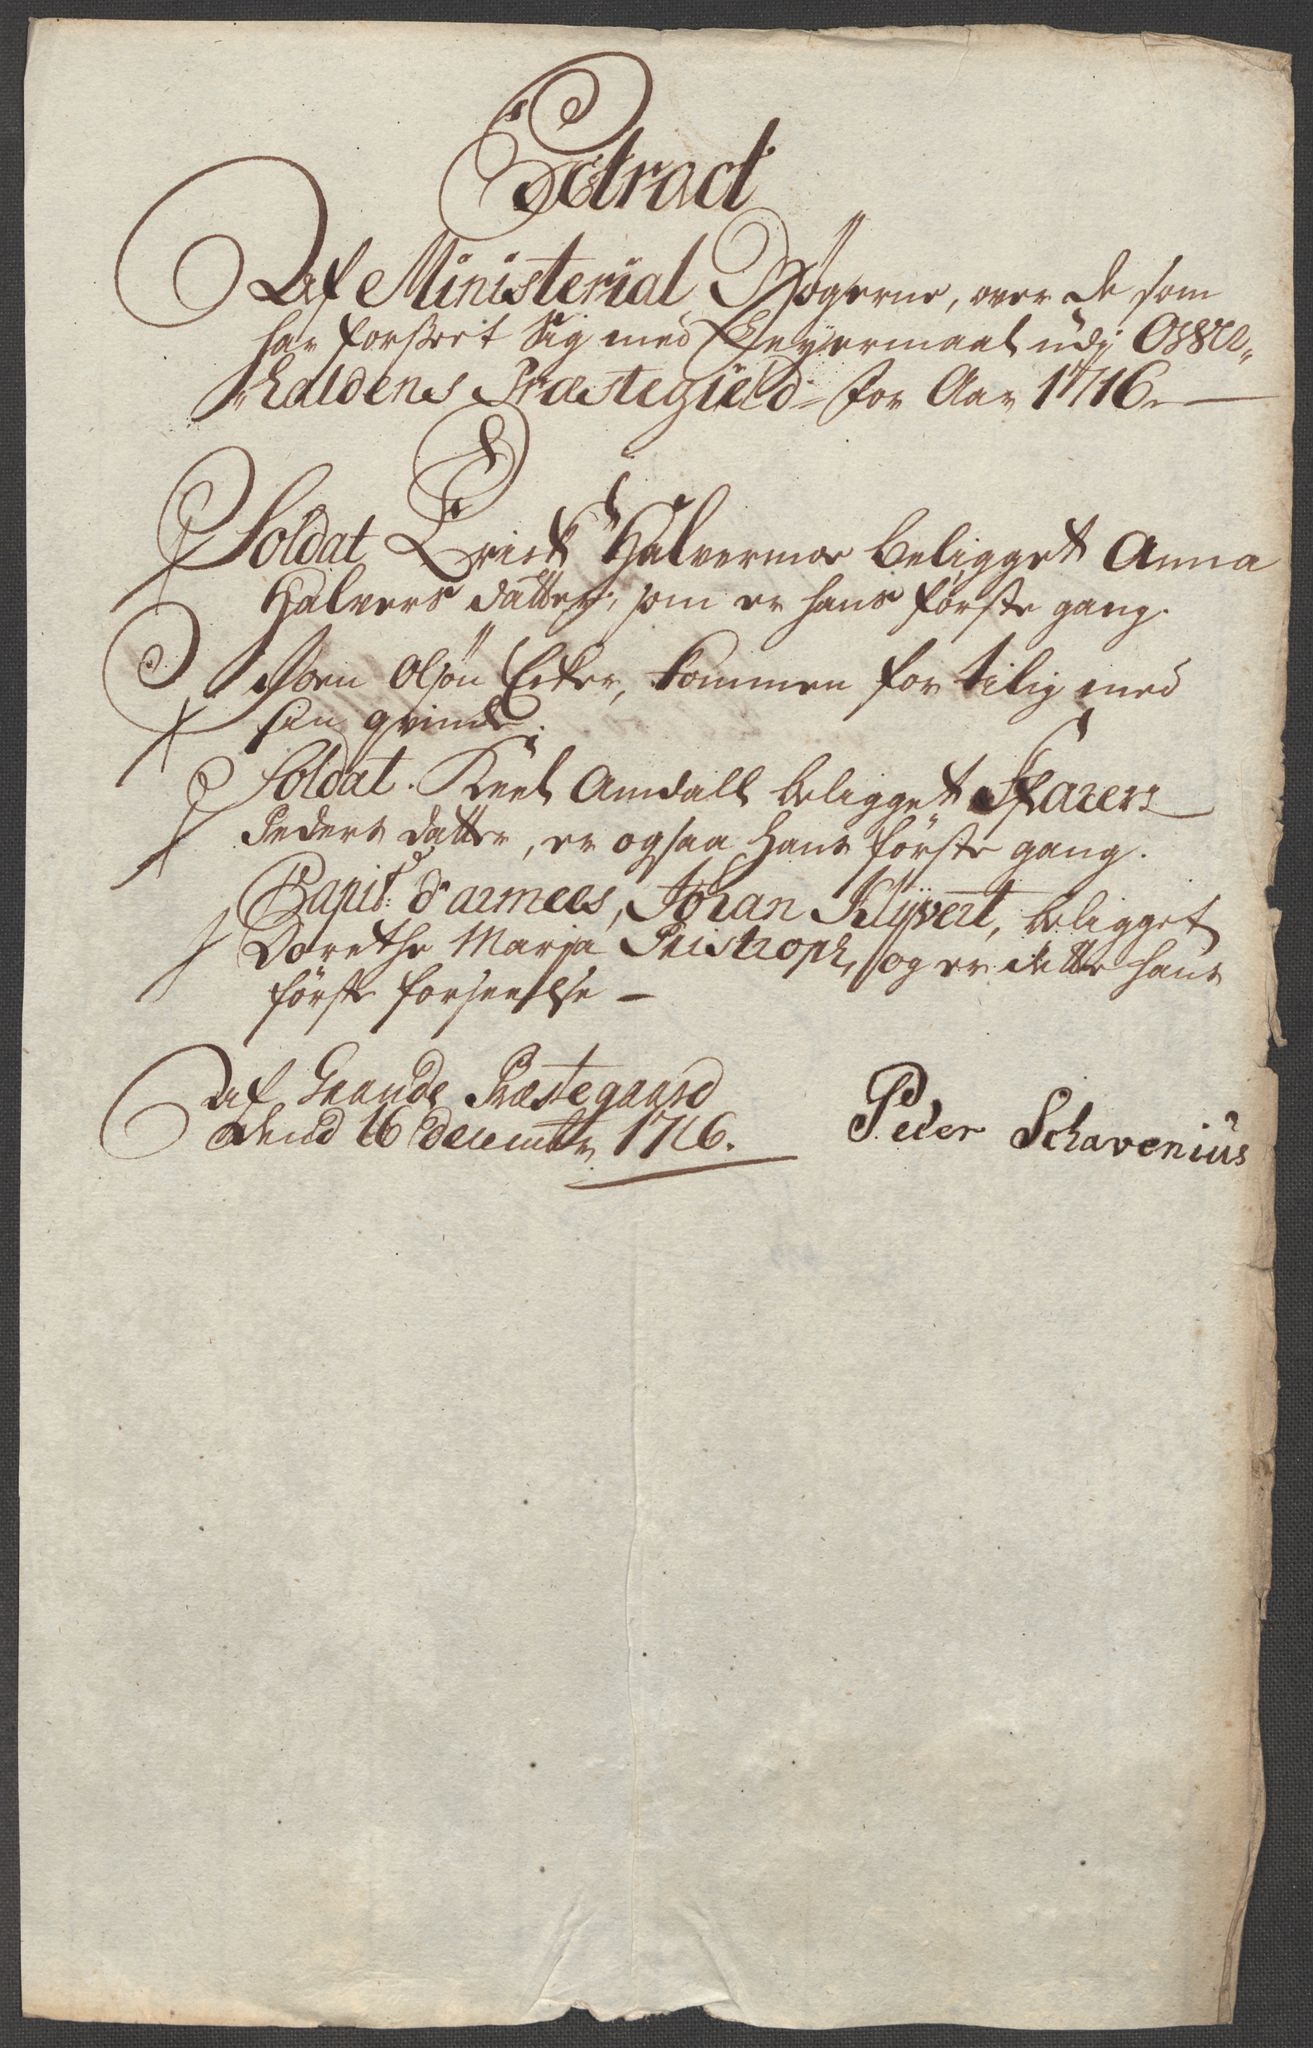 Extract
Af Ministerial Bögerne, over de som
har forseet sig med Leyermaal udj Over„
„haldens Præstegield for Aar 1716.
Soldat Erick Halvermoe beligget Anna
Halvers datter, som er hans første gang.
Joen Olsön Ecker, kommen for tilig med
sin qvinde.
Soldat Keel Amdall beligget Maren
Peders datter, er ogsaa hans förste gang.
Capit: d'armees, Johan Klüvert, beligget
Dorethe Maria, og er dette hans
förste forseelse –
Af Præstegaard
dend 16 decembr 1716.
Peder Schavenius